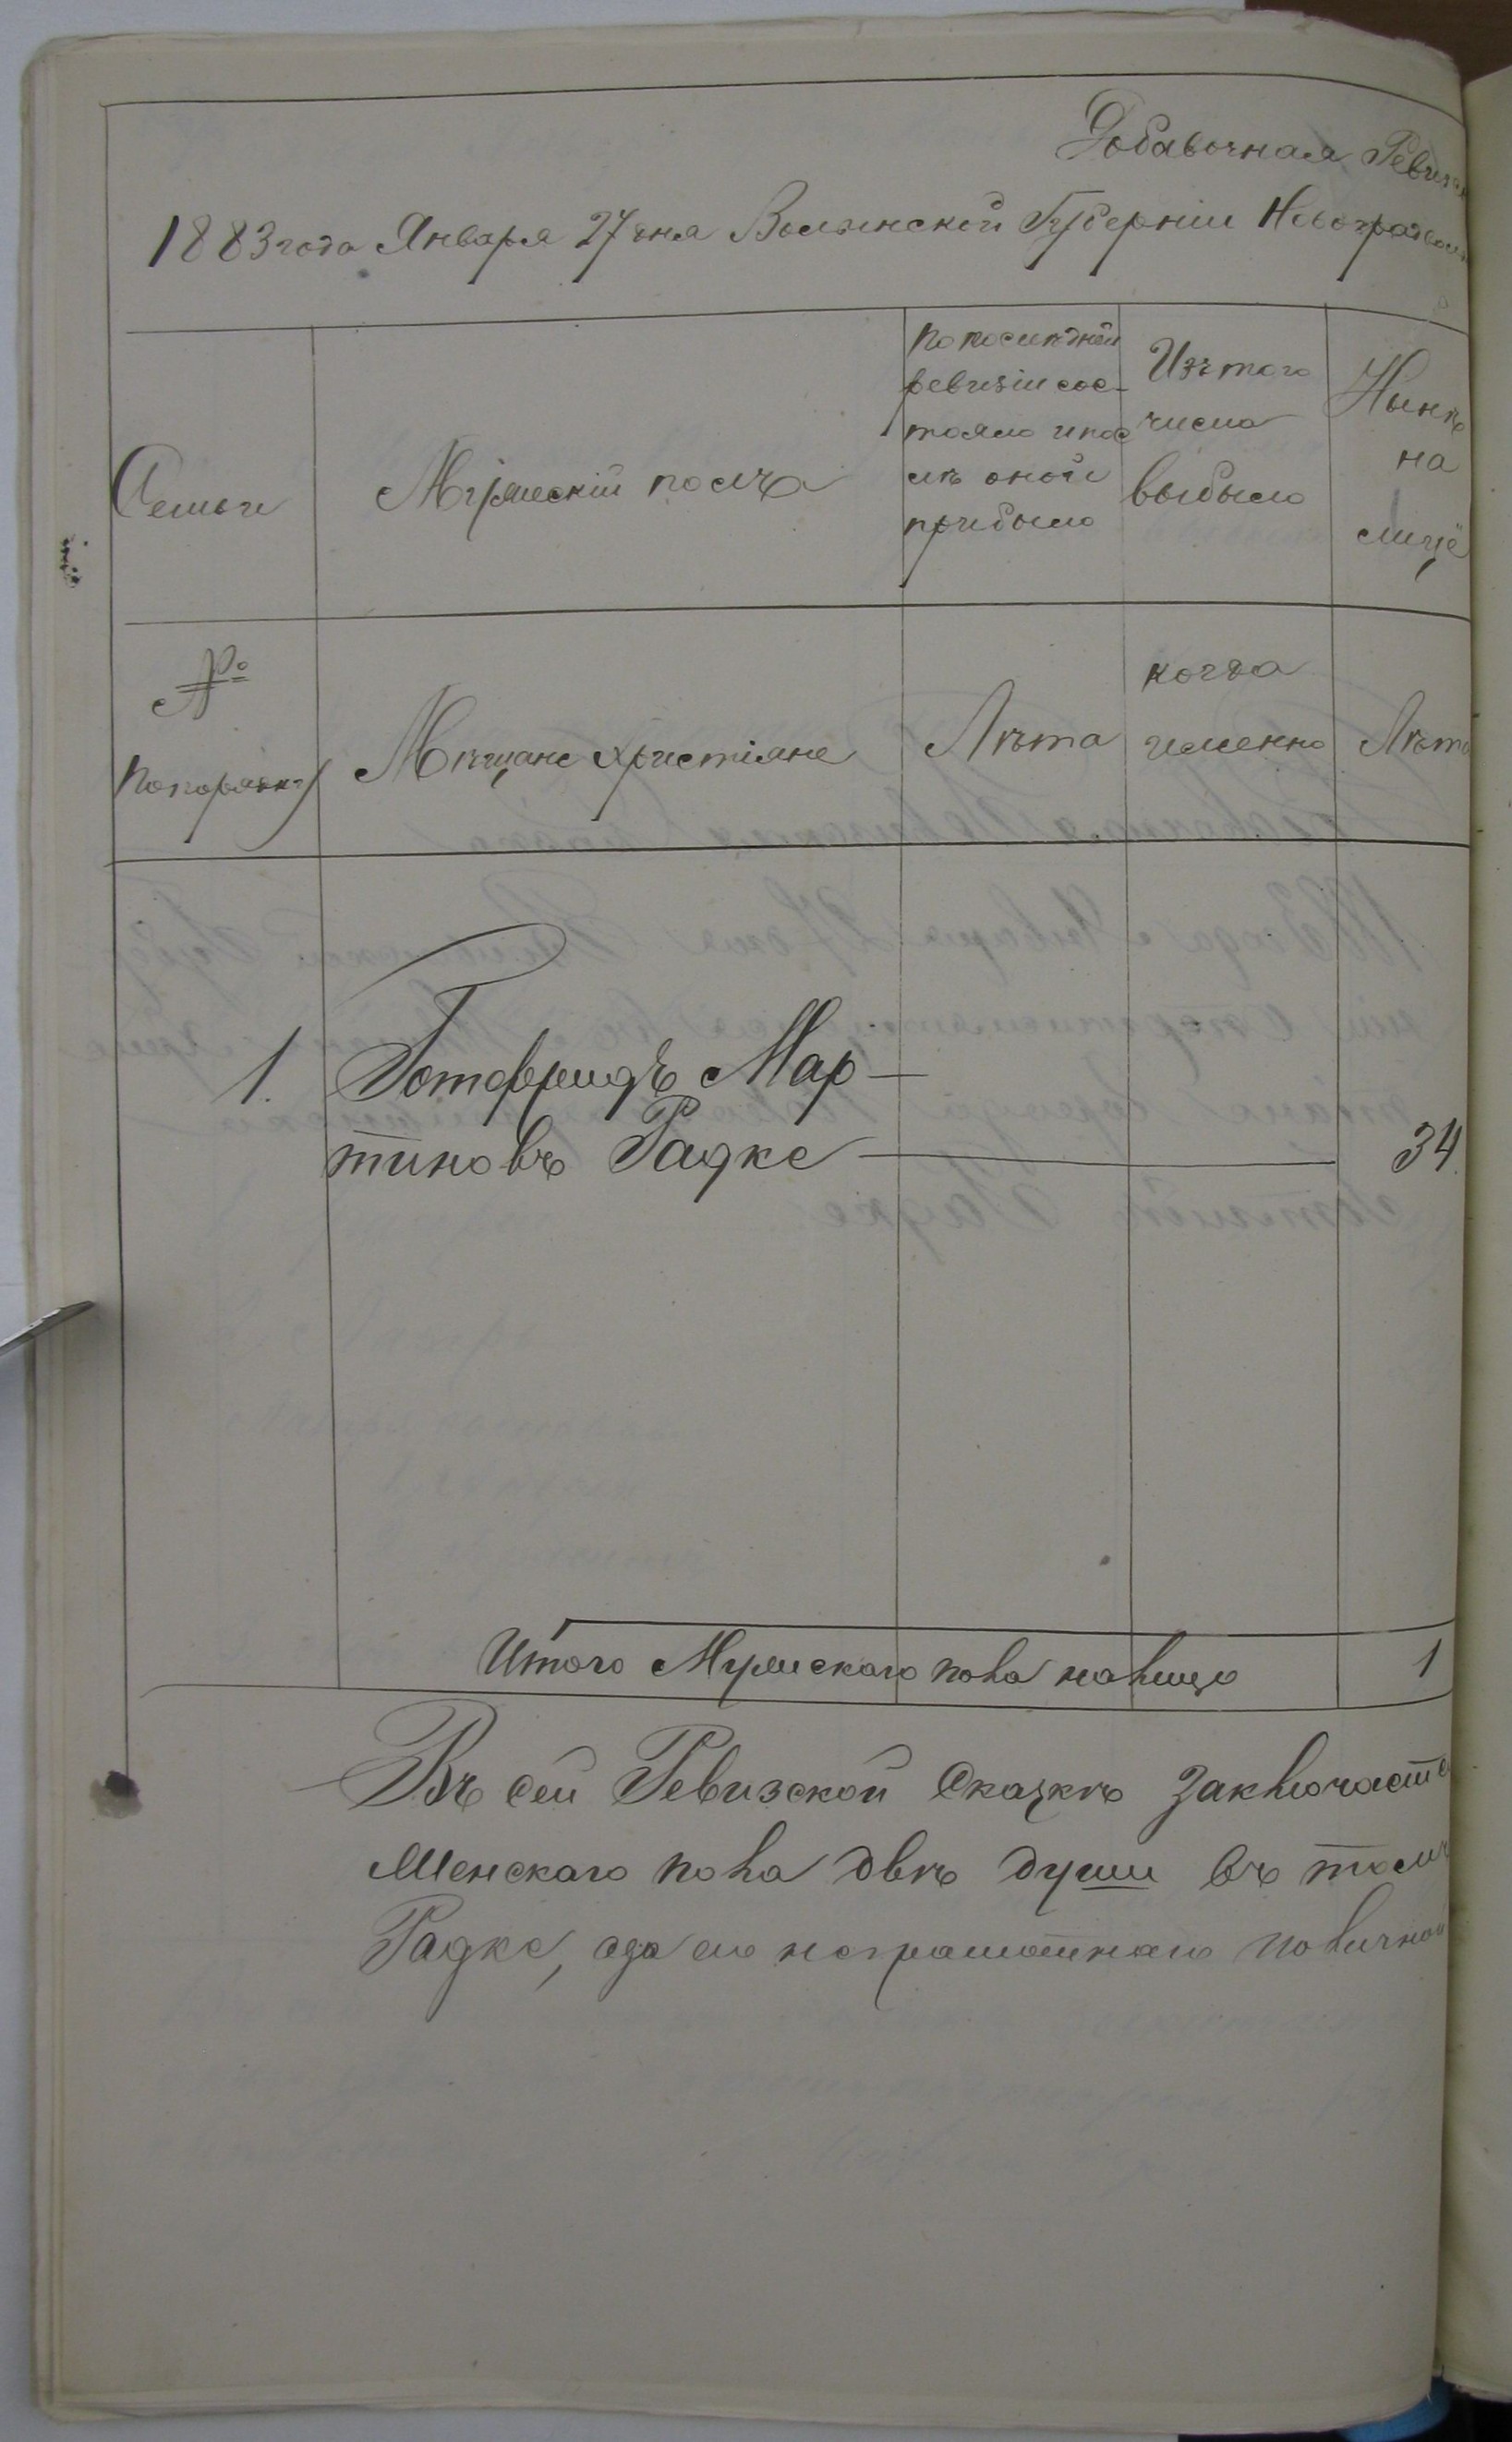 Добавочная Ревизс
1883 года Января 27 дня Волынской Губерніи Новоградвол
Семьи
Мужескій полъ
По послѣдней
ревизіи сос-
тояло и пос
лѣ оной
прибыло
Изъ того
числа
выбыло
Нынѣ
на
лицо
№
По порядку
Мѣщане христіяне
Лѣта
когда
именно
Лѣта
1. Готфридъ Мар
тиновъ Радке 34
Итого Мужескаго пола на лицо 1
Въ сей Ревизской Сказкѣ заключаетс
Женскаго пола двѣ души въ томъ
Радке, а за его неграмотнаго по личной